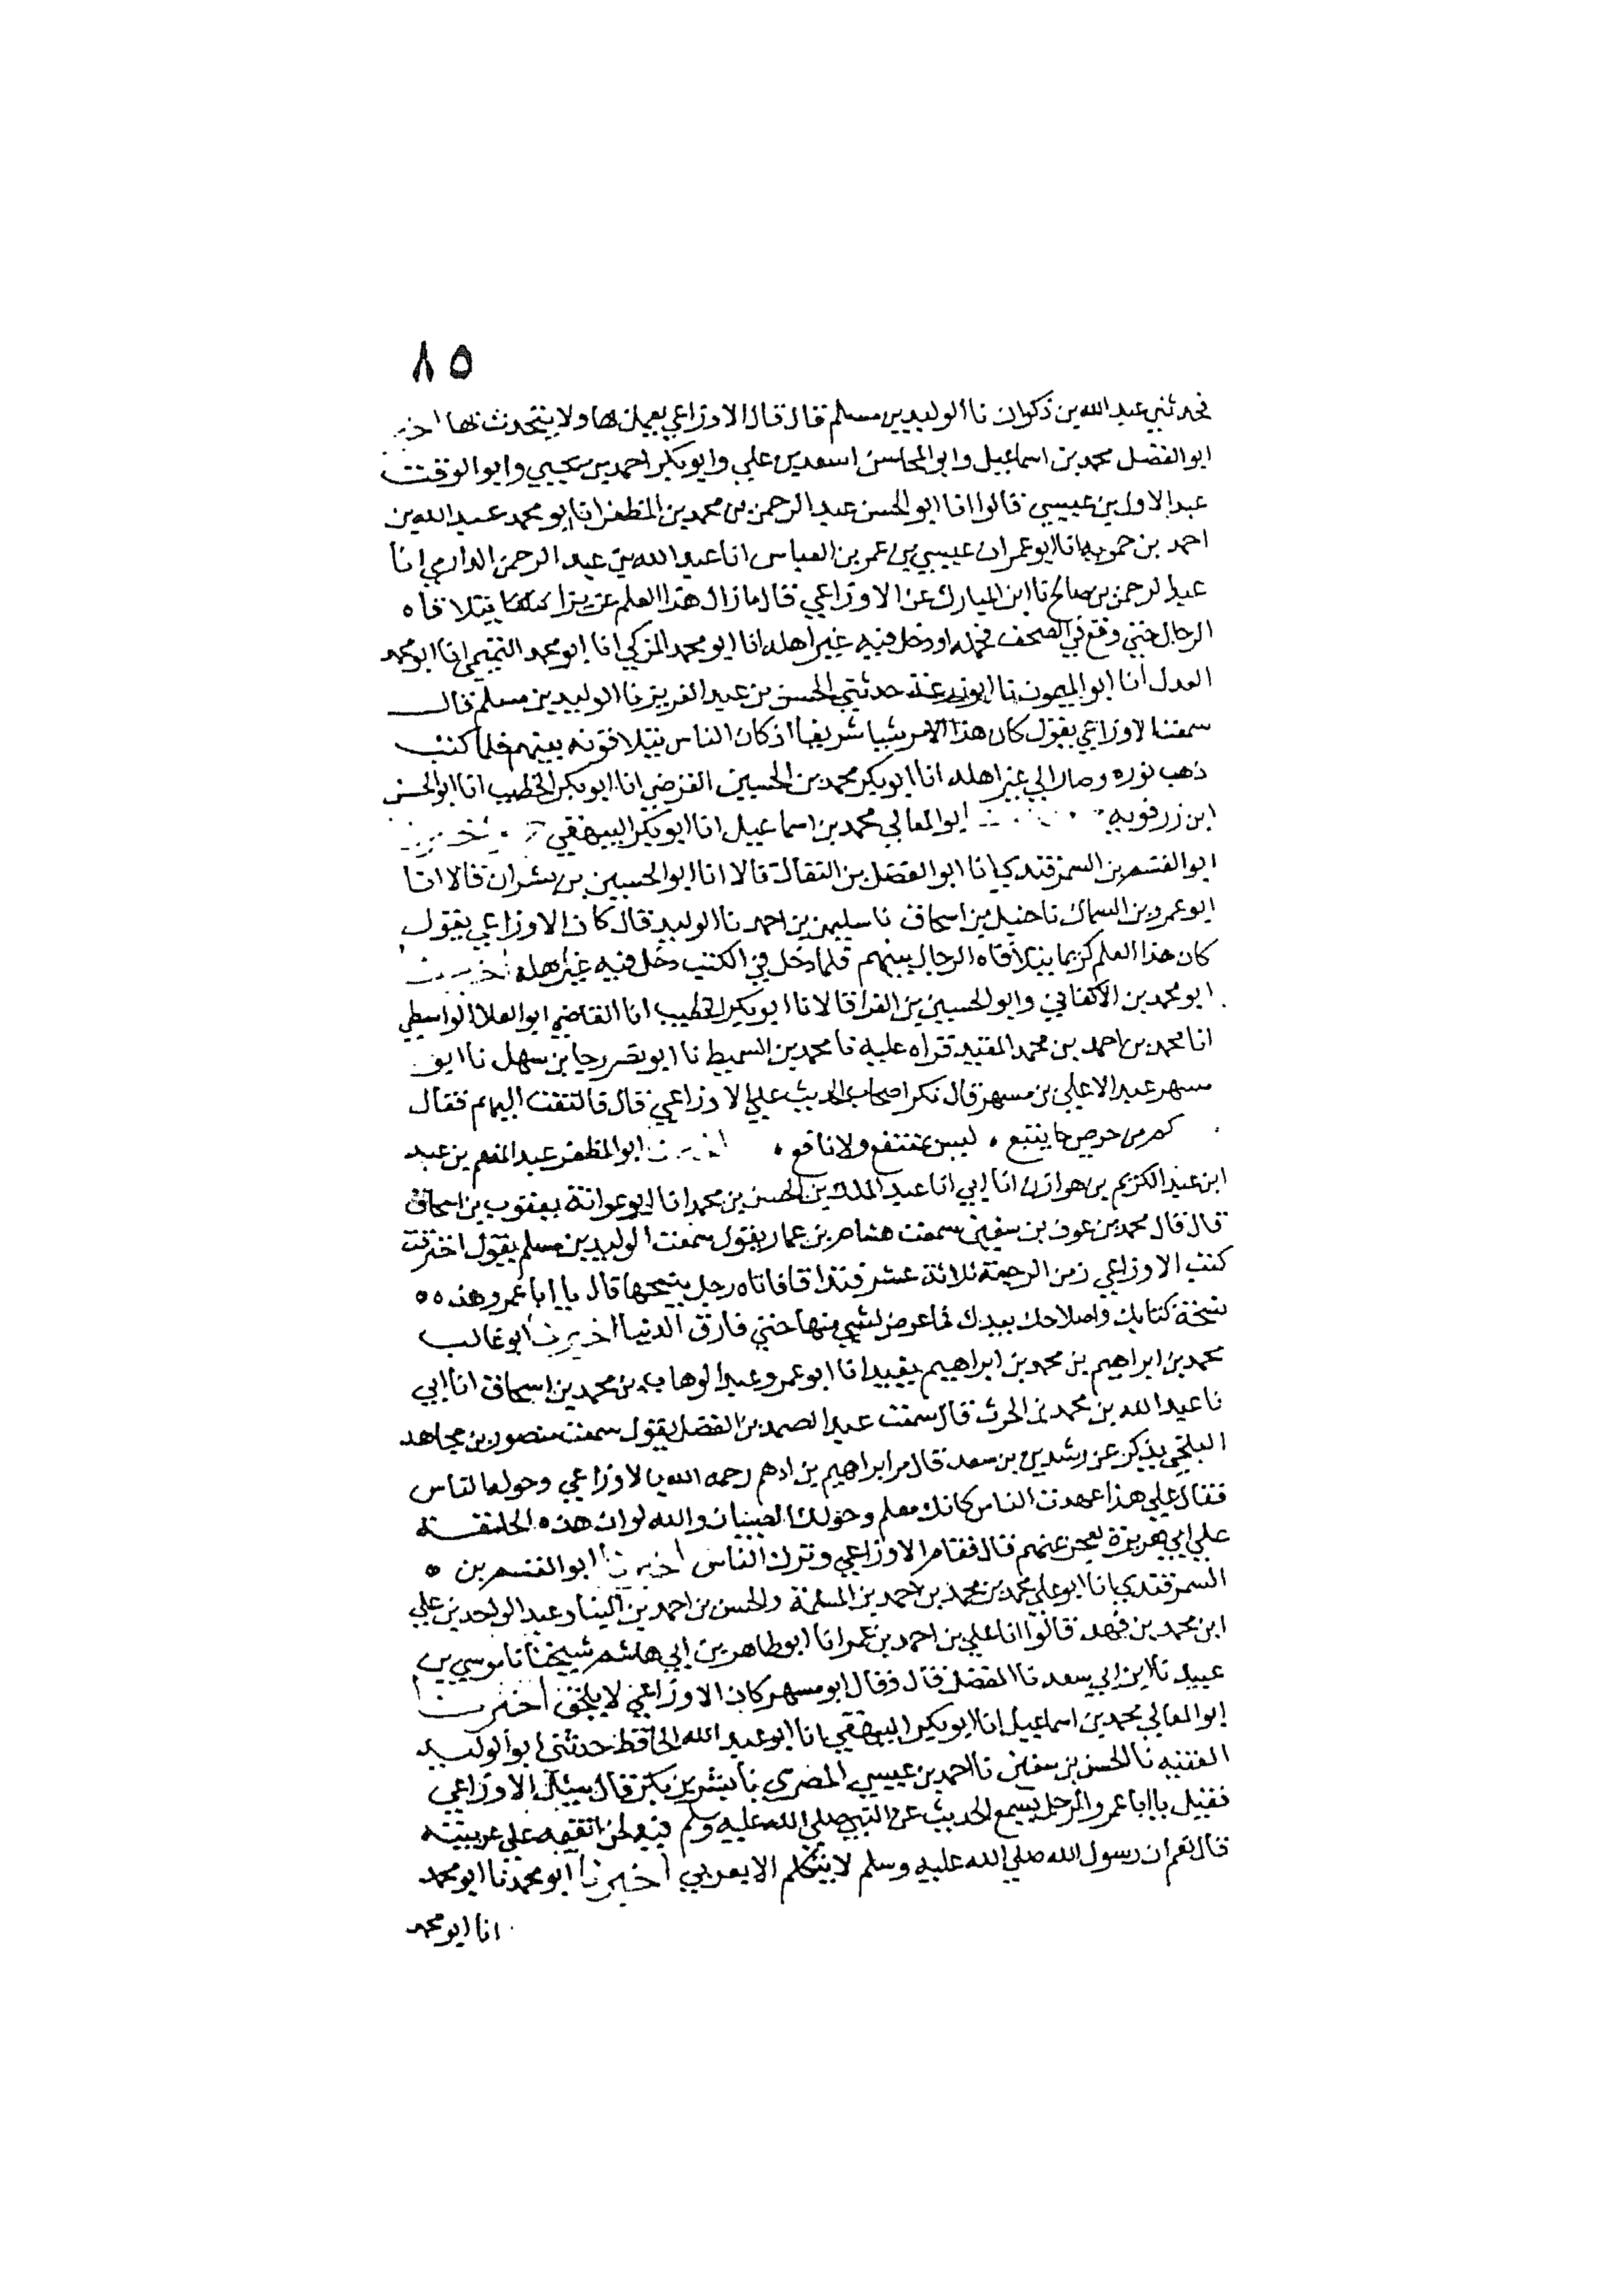 ٨٥
فحدثني عبد الله بن ذكوان نا الوليد بن مسلم قال قال الاوزاعي يعمل بها ولا يتحدث بها
ابو الفضل محمد بن اسماعيل وابو المحاسن اسعد بن علي وابو بكر احمد بن يحيي وابو الوقت
عبد الاول بن عيسي قالوا انا ابو الحسن عبد الرحمن بن محمد بن المظفر انا ابو محمد عبد الله بن
احمد بن حمويه انا ابو عمران عيسي بن عمر بن العباس انا عبد الله بن عبد الرحمن الدارمي انا
عبد الرحمن بن صالح نا ابن المبارك عن الاوزاعي قال ما زال هذا العلم عزيزا يتلاقاه
الرجال حتي وقع في الصحف فحمله او دخل فيه غير اهله انا ابو محمد المزكي انا ابو محمد التميمي انا ابو محمد
العدل انا ابو الميمون نا ابو زرعة حدثني الحسن بن عبد العزيز نا الوليد بن مسلم قال
سمعت الاوزاعي يقول كان هذا الامر شيا شريفا اذ كان الناس يتلاقونه بينهم فلما كتب
ذهب نوره وصار الي غير اهله انا ابو بكر محمد بن الحسين الفرضي انا ابو بكر الخطيب انا ابو الحسن
ابن زرقويه ابو المعالي محمد بن اسماعيل انا ابو بكر البيهقي
ابو القسم بن السمرقندي انا ابو الفضل بن البقال قالا انا ابو الحسين بن بشران قالا انا
ابو عمرو بن السماك نا حنبل بن اسحاق نا سليمن بن احمد نا الوليد قال كان الاوزاعي يقول
كان هذا العلم كريما يتلاقاه الرجال بينهم فلما دخل في الكتب دخل فيه غير اهله اخبرنا
ابو محمد بن الاكفاني وابو الحسين بن الفرا قالا نا ابو بكر الخطيب انا القاضي ابو العلا الواسطي
انا محمد بن احمد بن محمد المفيد قراه عليه نا محمد بن السميط نا ابو نصر رجا بن سهل نا ابو
مسهر عبد الاعلي بن مسهر قال نكر اصحاب الحديث علي الاوزاعي قال فالتفت اليهم فقال
كم من حريص جا يتبع ، ليس بمنتفع ولا نافع ، اخبرنا ابو المظفر عبد المنعم بن عبد
ابن عبد الكريم بن هوازن انا ابي انا عبد الملك بن الحسن بن محمد انا ابو عوانة يعقوب بن اسحاق
قال قال محمد بن عوف بن سفين سمعت هشام بن عمار يقول سمعت الوليد بن مسلم يقول احترقت
كتب الاوزاعي زمن الرجفة ثلاثة عشر فنداقا فاتاه رجل بنسخها قال يا ابا عمرو هذه
نسخة كتابك واصلاحك بيدك فما عرض لشي منها حتي فارق الدنيا اخبرنا ابو غالب
محمد بن ابراهيم بن محمد بن ابراهيم انا ابو عمرو عبد الوهاب بن محمد بن اسحاق انا ابي
نا عبد الله بن محمد بن الحرث قال سمعت عبد الصمد بن الفضل يقول سمعت منصور بن مجاهد
البلخي يذكر عن رشدين بن سعد قال مر ابراهيم بن ادهم رحمه الله بالاوزاعي وحوله الناس
فقال علي هذا عهدت الناس كانك معلم وحولك الصبيان والله لو ان هذه الحلقة
علي ابي هريرة لعجز عنهم قال فقام الاوزاعي وترك الناس اخبرنا ابو القسم بن
السمرقندي انا ابو علي محمد بن محمد بن احمد بن المسلمة والحسن بن احمد بن البنا وعبد الواحد بن علي
ابن محمد بن فهد قالوا انا علي بن احمد بن عمر انا ابو طاهر بن ابي هاشم شيخنا نا موسي بن
عبيد نا ابن ابي سعد نا المفضل قال وقال ابو مسهر كان الاوزاعي لا يلحن اخبرنا
ابو المعالي محمد بن اسماعيل انا ابو بكر البيهقي انا ابو عبد الله الحافظ حدثني ابو الوليد
الفقيه نا الحسن بن سفين نا احمد بن عيسي المصري نا بشر بن بكر قال سئل الاوزاعي
فقيل يا ابا عمرو الرجل يسمع الحديث عن النبي صلي الله عليه وسلم فيه لحن ايقيمه علي عربيته
قال نعم ان رسول الله صلي الله عليه وسلم لا يتكلم الا بعربي اخبرنا ابو محمد نا ابو محمد
انا ابو محمد